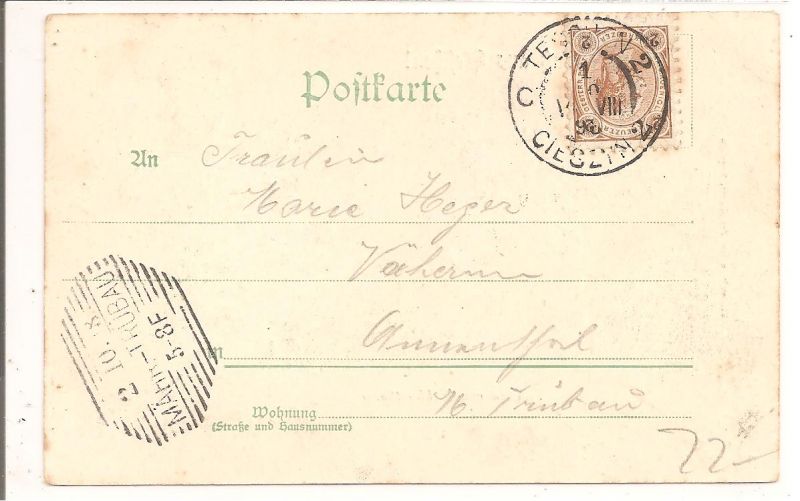 Postkarte
TESCHEN 2
CIESZYN 2
VIII
An Fräulein
Marie Heger
Näherin
in Annenthal
M. Trübau
Wohnung
(Straße und Hausnummer)
2 10. 8
MÄHR.-TRÜBAU
5-8F
22-